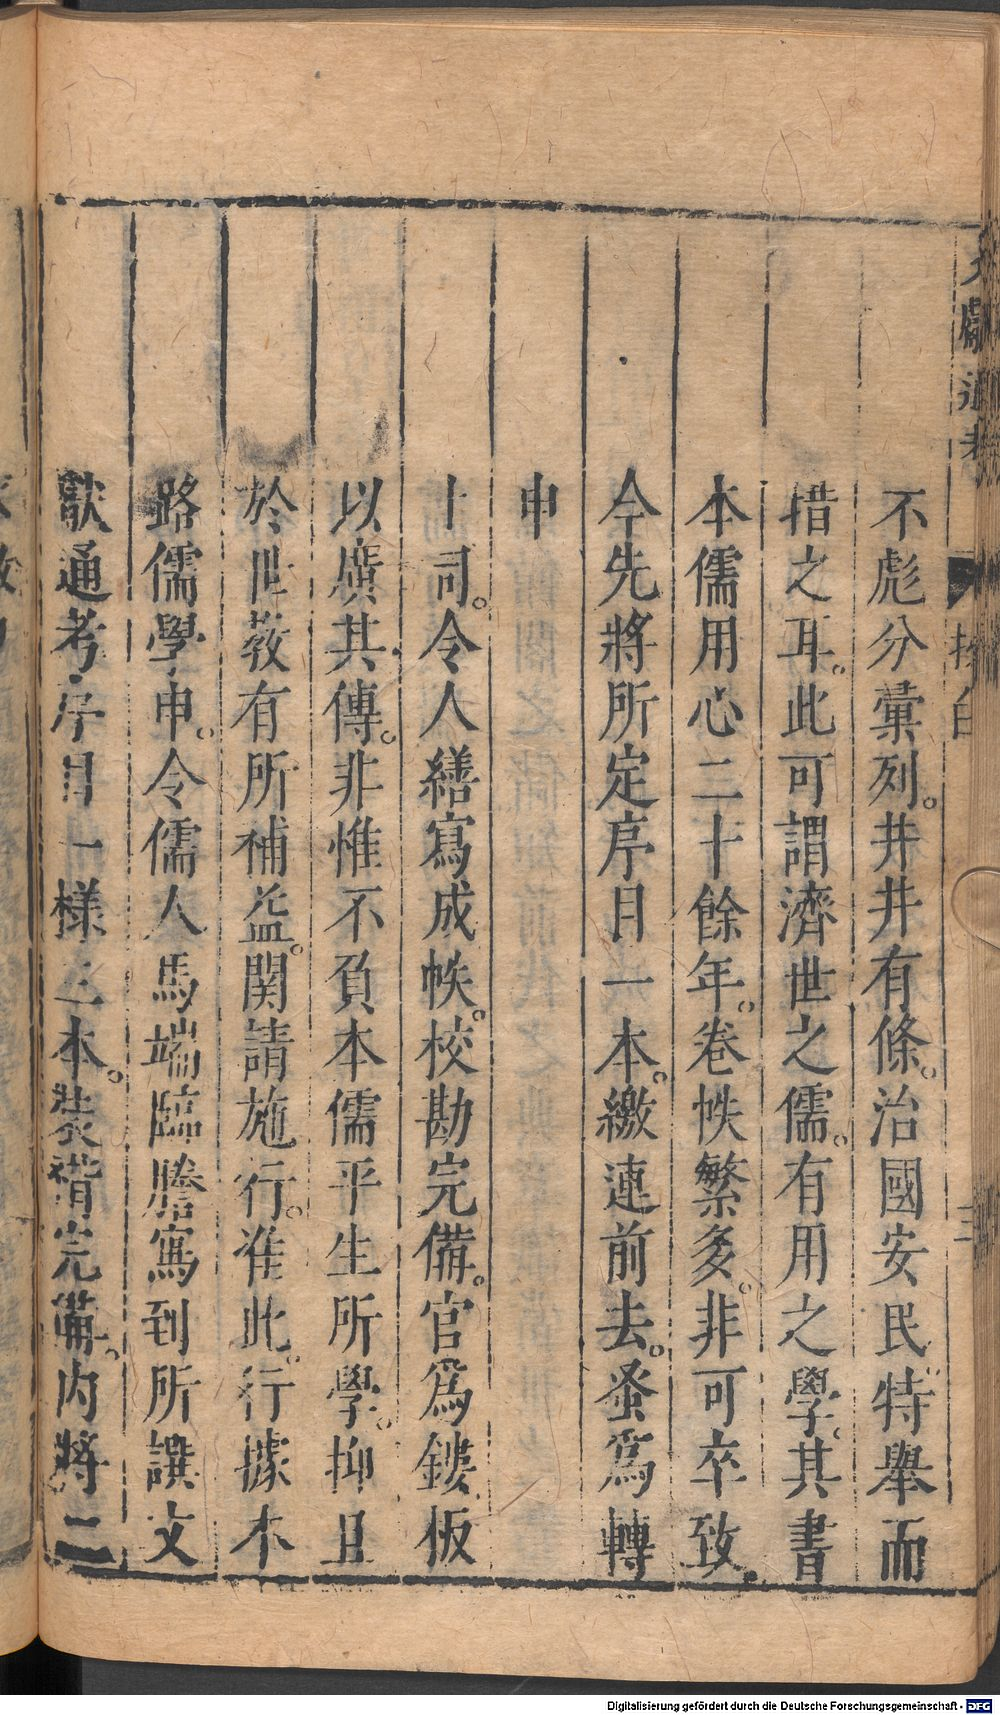 文獻通考
抄白
三
不彪分彙列。井井有條。治國安民。特舉而
措之耳。此可謂濟世之儒。有用之學。其書
本儒用心二十餘年。卷帙繁多。非可卒致。
今先將所定序目一本。繳連前去。蚤爲轉
申
上司。令人繕寫成帙。校勘完備。官爲鏤板
以廣其傳。非惟不負本儒平生所學。抑且
於世教有所補益。関請施行。准此。行據本
路儒學申。令儒人馬端臨謄寫到所譔文
獻通考序目一樣二本。裝褙完備。內將一
Digitalisierung gefördert durch die Deutsche Forschungsgemeinschaft - DFG